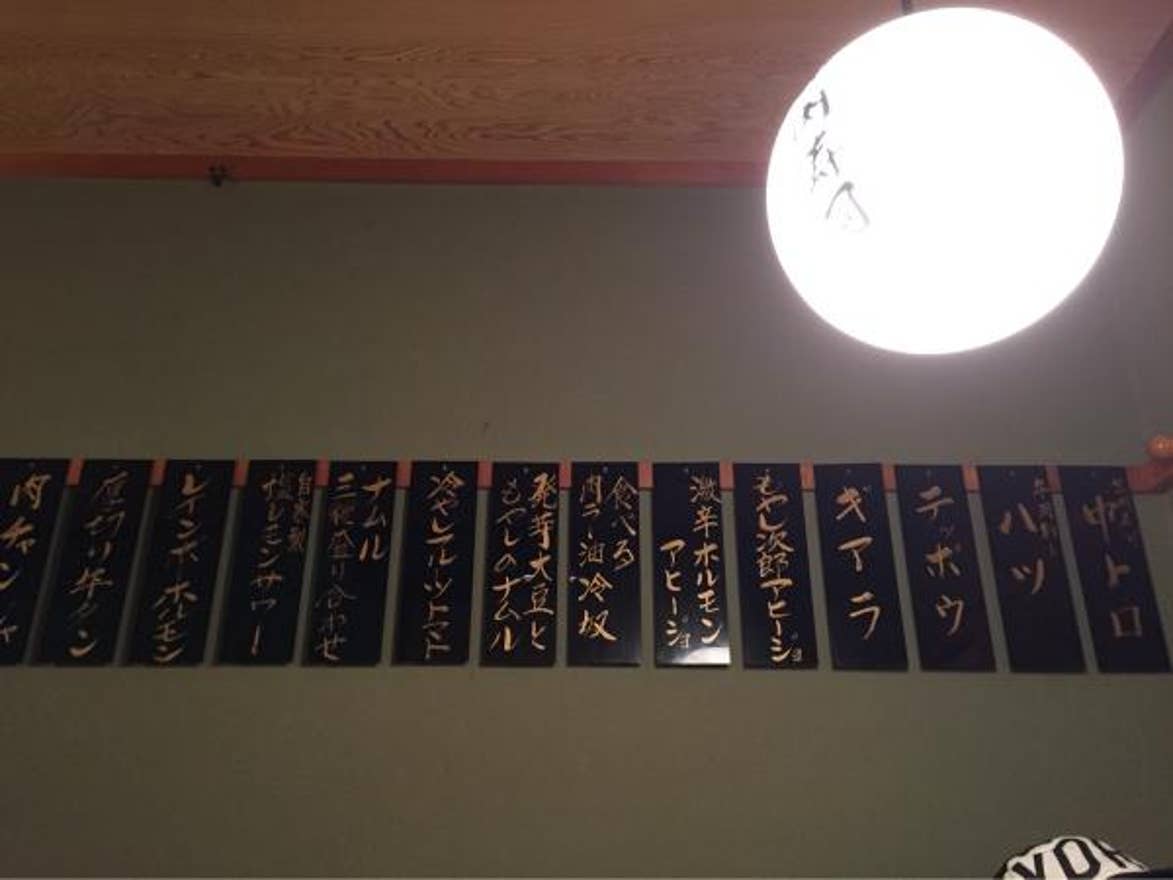 中トロ
ハツ
テッポウ
ギアラ
もやし次郎アヒージョ
激辛ホルモン
アヒージョ
食べる
肉ラー油冷奴
発芽大豆と
もやしのナムル
冷やしフルーツトマト
ナムル
三種盛り合わせ
自家製
塩レモンサワー
レインボーホルモン
厚切り牛タン
肉チャンジャ
YOK